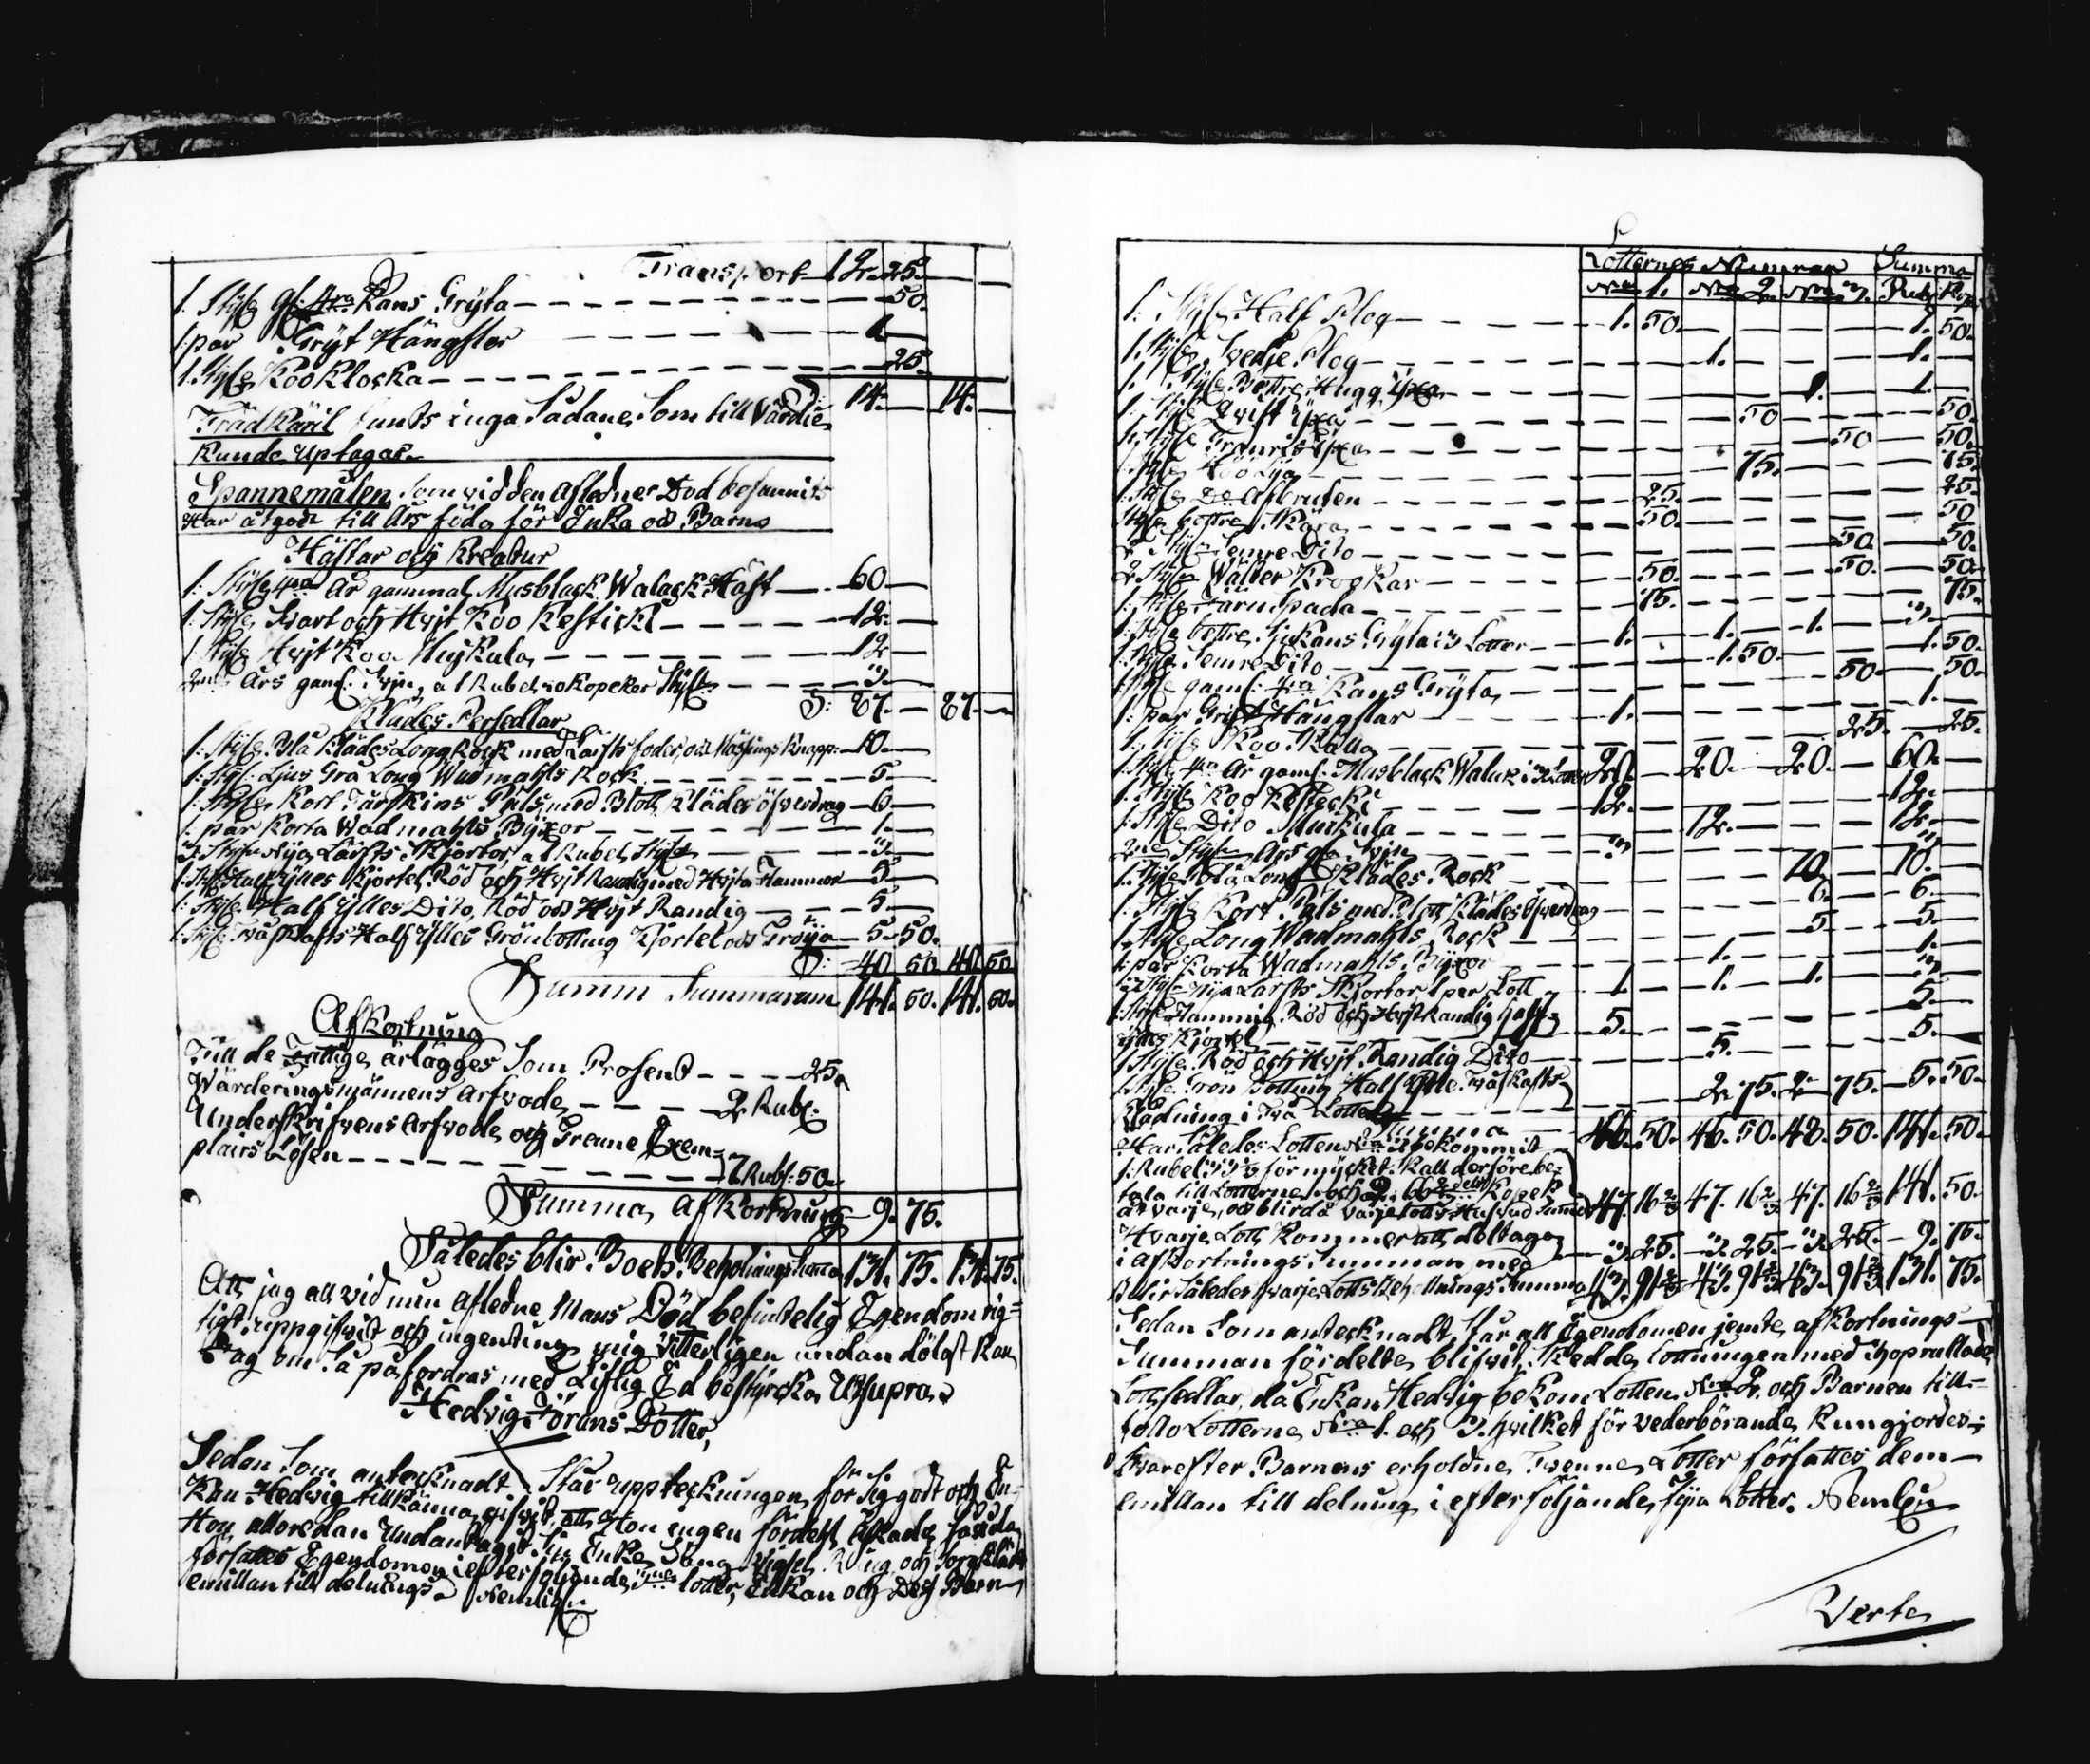 Transport 12. 25.
1. Styck gl: 4ra Kans Gryta 50.
1. par Gryt Hängslor 1.
1. Styck Koo Klocka 25.
S: 14. 14.
Trädkäril funts inga Sådane Som till Värdie
Kunde uptagas.
Spannemålen Som vid den Aflednes Död befunnits
Har åtgådt till Års föda för Enka och Barns
Hästar och Kreatur
1: Styck 4ra År gammal Musblack Walack Häst 60.
1: Styck Svart och Hvit Koo Kesticki 12.
1. Styck Hvit Koo Mujkula 12
2ne Års gaml: Svin, a 1 Rubel, 50 Kopeker Stycket 3.
S: 87. 87.
Klädes Persedlar
1: Styck Blå Klädes Long Rock med Lärfts foder och Mässings Knapp: 10.
1: Styck Ljus Grå Long Wadmahls Rock 5.
1: Styck Kort Fårskins Päls med Blott Klädes öfverdrag 6.
1: par Korta Wadmahls Byxor 1.
3: Stycken Nya Lärfts Skjortor, a 1 Rubel Stycket 3.
1: Styck Halfylles Kjortel Röd och Hvit Randig med Hvita Flammor 5.
1: Styck Halfylles Dito, Röd och Hvit Randig 5.
1: Styck Tvåskafts Halfylles Grönbottnig Kjortel och Tröija 5. 50.
S: 40 50 40 50
Summa Summarum 141. 50. 141. 50.
Afkortning
Till de Fattige ärlägges Som Prosent 25.
Wärderingsmännens Arfvode 2 Rubl:
Underskrifvens Arfvode och Trenne Exem=
plairs Lösen 7. Rubl: 50.
Summa Afkortning 9. 75.
Således blir Boets Behollnings Summa 131. 75. 131. 75.
Att jag allt vid min Afledne Mans Död befintelig Egendom rig=
tigt uppgifvit och ingenting mig Vitterligen undan dölgt Kan
Jag om Så påfordras med Liflig Ed bestyrcka Utsupra.
Hedvig Jörans Dotter,
Sedan Som antecknadt Står uppteckningen för Sig gådt och En=
kan Hedvig tillkänna gifvit att Hon ingen fördehl
Hon alloredan Undantagit Sin Enke Säng Vigsel Ring och Sorgkläder
författes Egendomen i efterföljande 3ne lotter, Enkan och Des Barn
emillan till delnings. Nemligen
Lotternes Numror Summa
No 1. No 2. No 3. Rub. Kop.
1: Styck Half Plog 1. 50. 1. 50.
1. Styck Svedje Plog 1. 1.
1. Styck Bättre Hugg Yxa 1. 1.
1: Styck Qvist Yxa 50 50.
1: Styck Yxa 50 50.
1: Styck Höö Lija 75. 75.
1: Styck Do Afbruten 25. 25.
Styck bättre Skära 50. 50
2 Styck Semre Dito 50. 50.
2 Styck Wälter Krockar 50. 50. 50.
1: Styck Järn Spada 75. 75.
1: Styck bättre Sju Kans Gryta i 3 Lotter 1. 1. 1. 3.
1: Styck Semre Dito 1. 50. 1. 50.
1: Styck gaml: 4ra Kans Gryta 50. 50.
1: par Gryt Hängslor 1. 1.
1: Styck Koo Skälla 25. 25.
1: Styck 4ra År gaml: Musblack Walack i 3 Lotter 20. 20. 20. 60.
1. Styck Koo Kestecki 12. 12.
1: Styck Dito Murkula 12. 12.
2ne Stycken Års gla Svin 3. 3.
1: Styck Blå Long Klädes Rock 10. 10.
1: Styck Kort Päls med Blott Klädes öfverdrag 6. 6.
1 Styck Long Wadmahls Rock 5 5.
1: par Korta Wadmahls Byxor 1. 1.
3: Styck Nya Lärfts Skjortor 1 per Lott 1. 1. 1. 3.
1: Styck Flammig Röd och Hvit Randig Half= 5.
ylles Kjortel 5.
1 Styck Röd och Hvit Randig Dito 5. 5.
1 Styck Grön Bottnig Half Ylle Tvåskafts
Klädning i Två Lotter 2 75. 2 75. 5. 50.
Summa 46. 50. 46. 50. 48. 50. 141. 50.
Har Således Lotten No 3 bekommit
1: Rubel 33⅓ för mycket Skall derföre be=
tala till Lotterne 1 och 2. 66 ⅔ Kopek
åt varje, och blir då varje Lotts Hufvud Summa 47. 16⅔ 47. 16⅔ 47. 16⅔ 141. 50.
Hvarje Lott Kommer att deltaga
i Afkortnings Summan med 3. 25. 3. 25. 3. 25. 9. 75.
Blir Således hvarje Lotts Behollnings Summa 43. 91⅔ 43. 91⅔ 43. 91⅔ 131. 75.
Sedan Som antecknadt Står all Egendomen jemte Afkortnings
Summan fördelte blifvit, Skedde lottningen med ihoprullade
Lottsedlar, då Enkan Hedvig bekom Lotten No 2. och Barnen till=
föllo Lotterne No 1. och 3. hvilket för vederbörande Kungjordes;
Hvarefter Barnens erholdne Tvenne Lotter författes dem
emillan till delning i efterföljande fyra Lotter. Nemligen
Verte